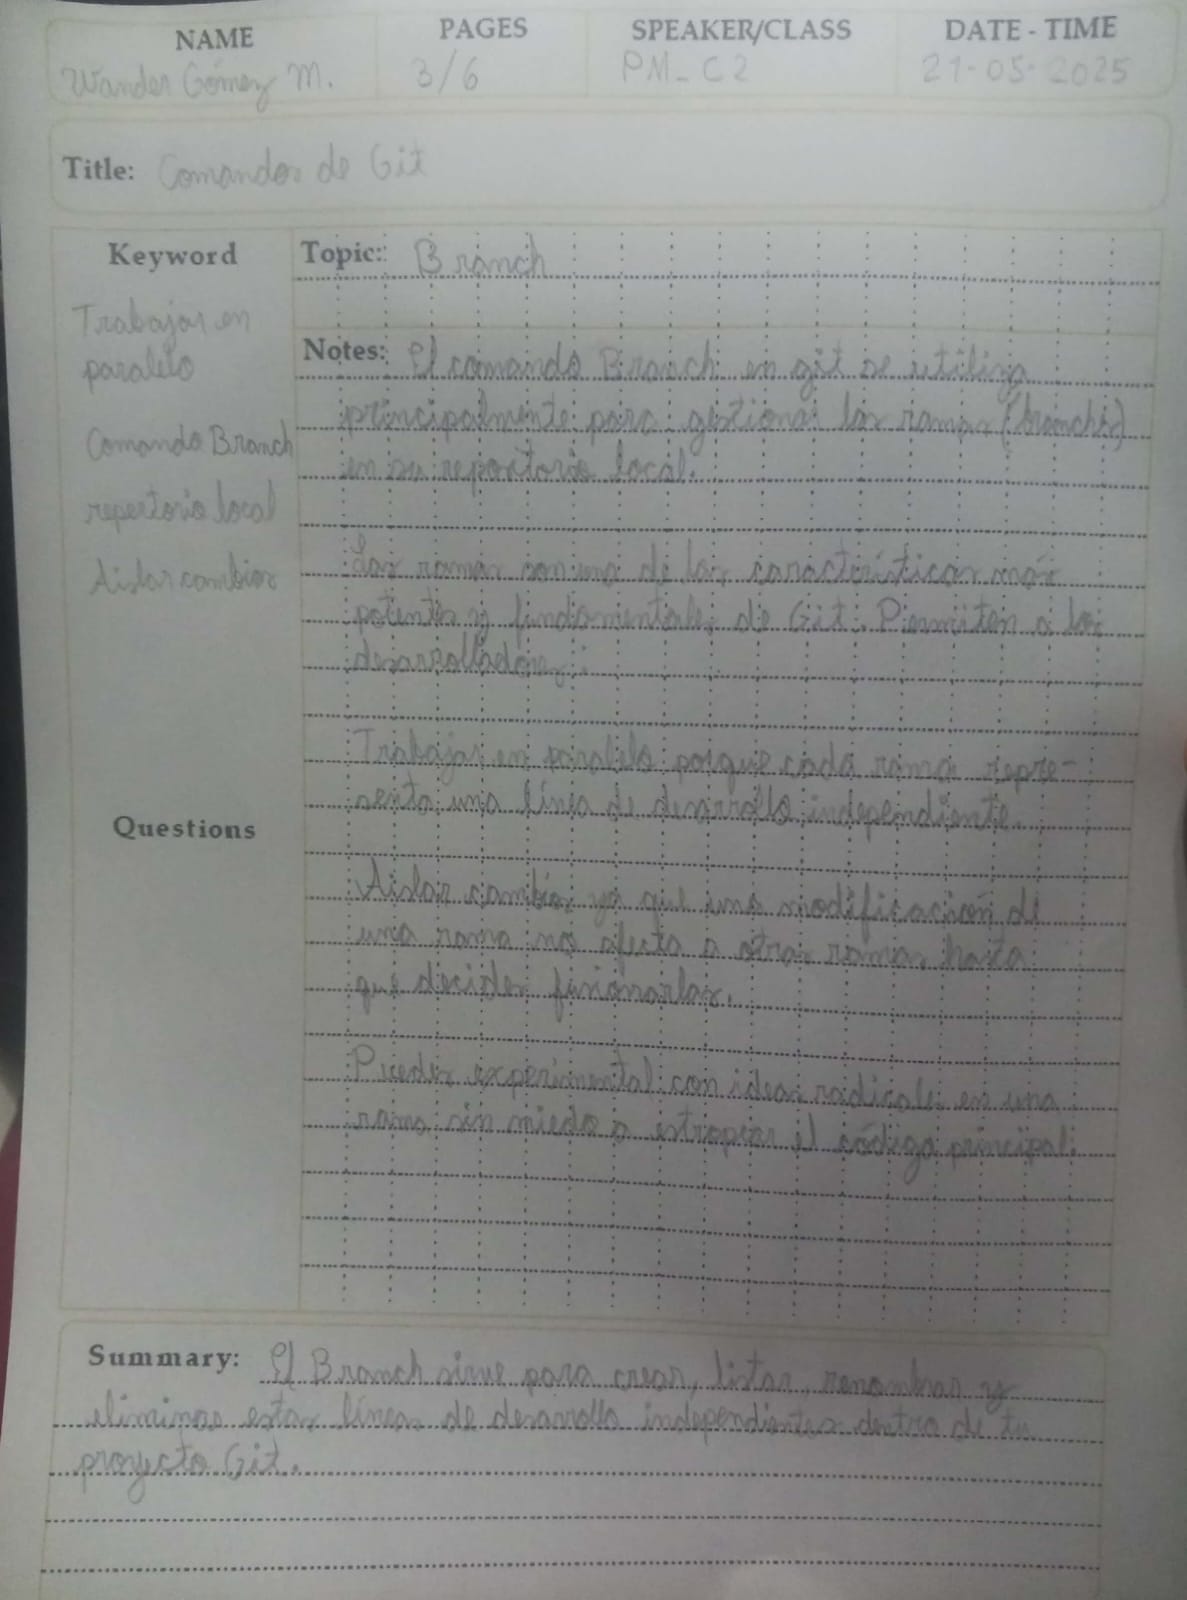 NAME
PAGES
SPEAKER/CLASS
DATE - TIME
Wander Gómez M.
3/6
PM_C2
21-05-2025
Title: Comandos de Git
Keyword
Trabajar en
paralelo
Comando Branch
repertorio local
Aislar cambios
Questions
Topic: Branch
Notes: El comando Branch en git se utiliza
principalmente para gestionar las ramas (branches)
en su repertorio local.
Las ramas son una de las características más
potentes y fundamentales de Git. Permiten a los
desarrolladores:
Trabajar en paralelo porque cada rama repre-
senta una línea de desarrollo independiente.
Aislar cambios ya que una modificación de
una rama no afecta a otras ramas hasta
que decides fusionarlas.
Puedes experimental con ideas radicales en una
rama sin miedo a estropear el código principal.
Summary: El Branch sirve para crear, listar, renombrar y
eliminar estas líneas de desarrollo independientes dentro de tu
proyecto Git.